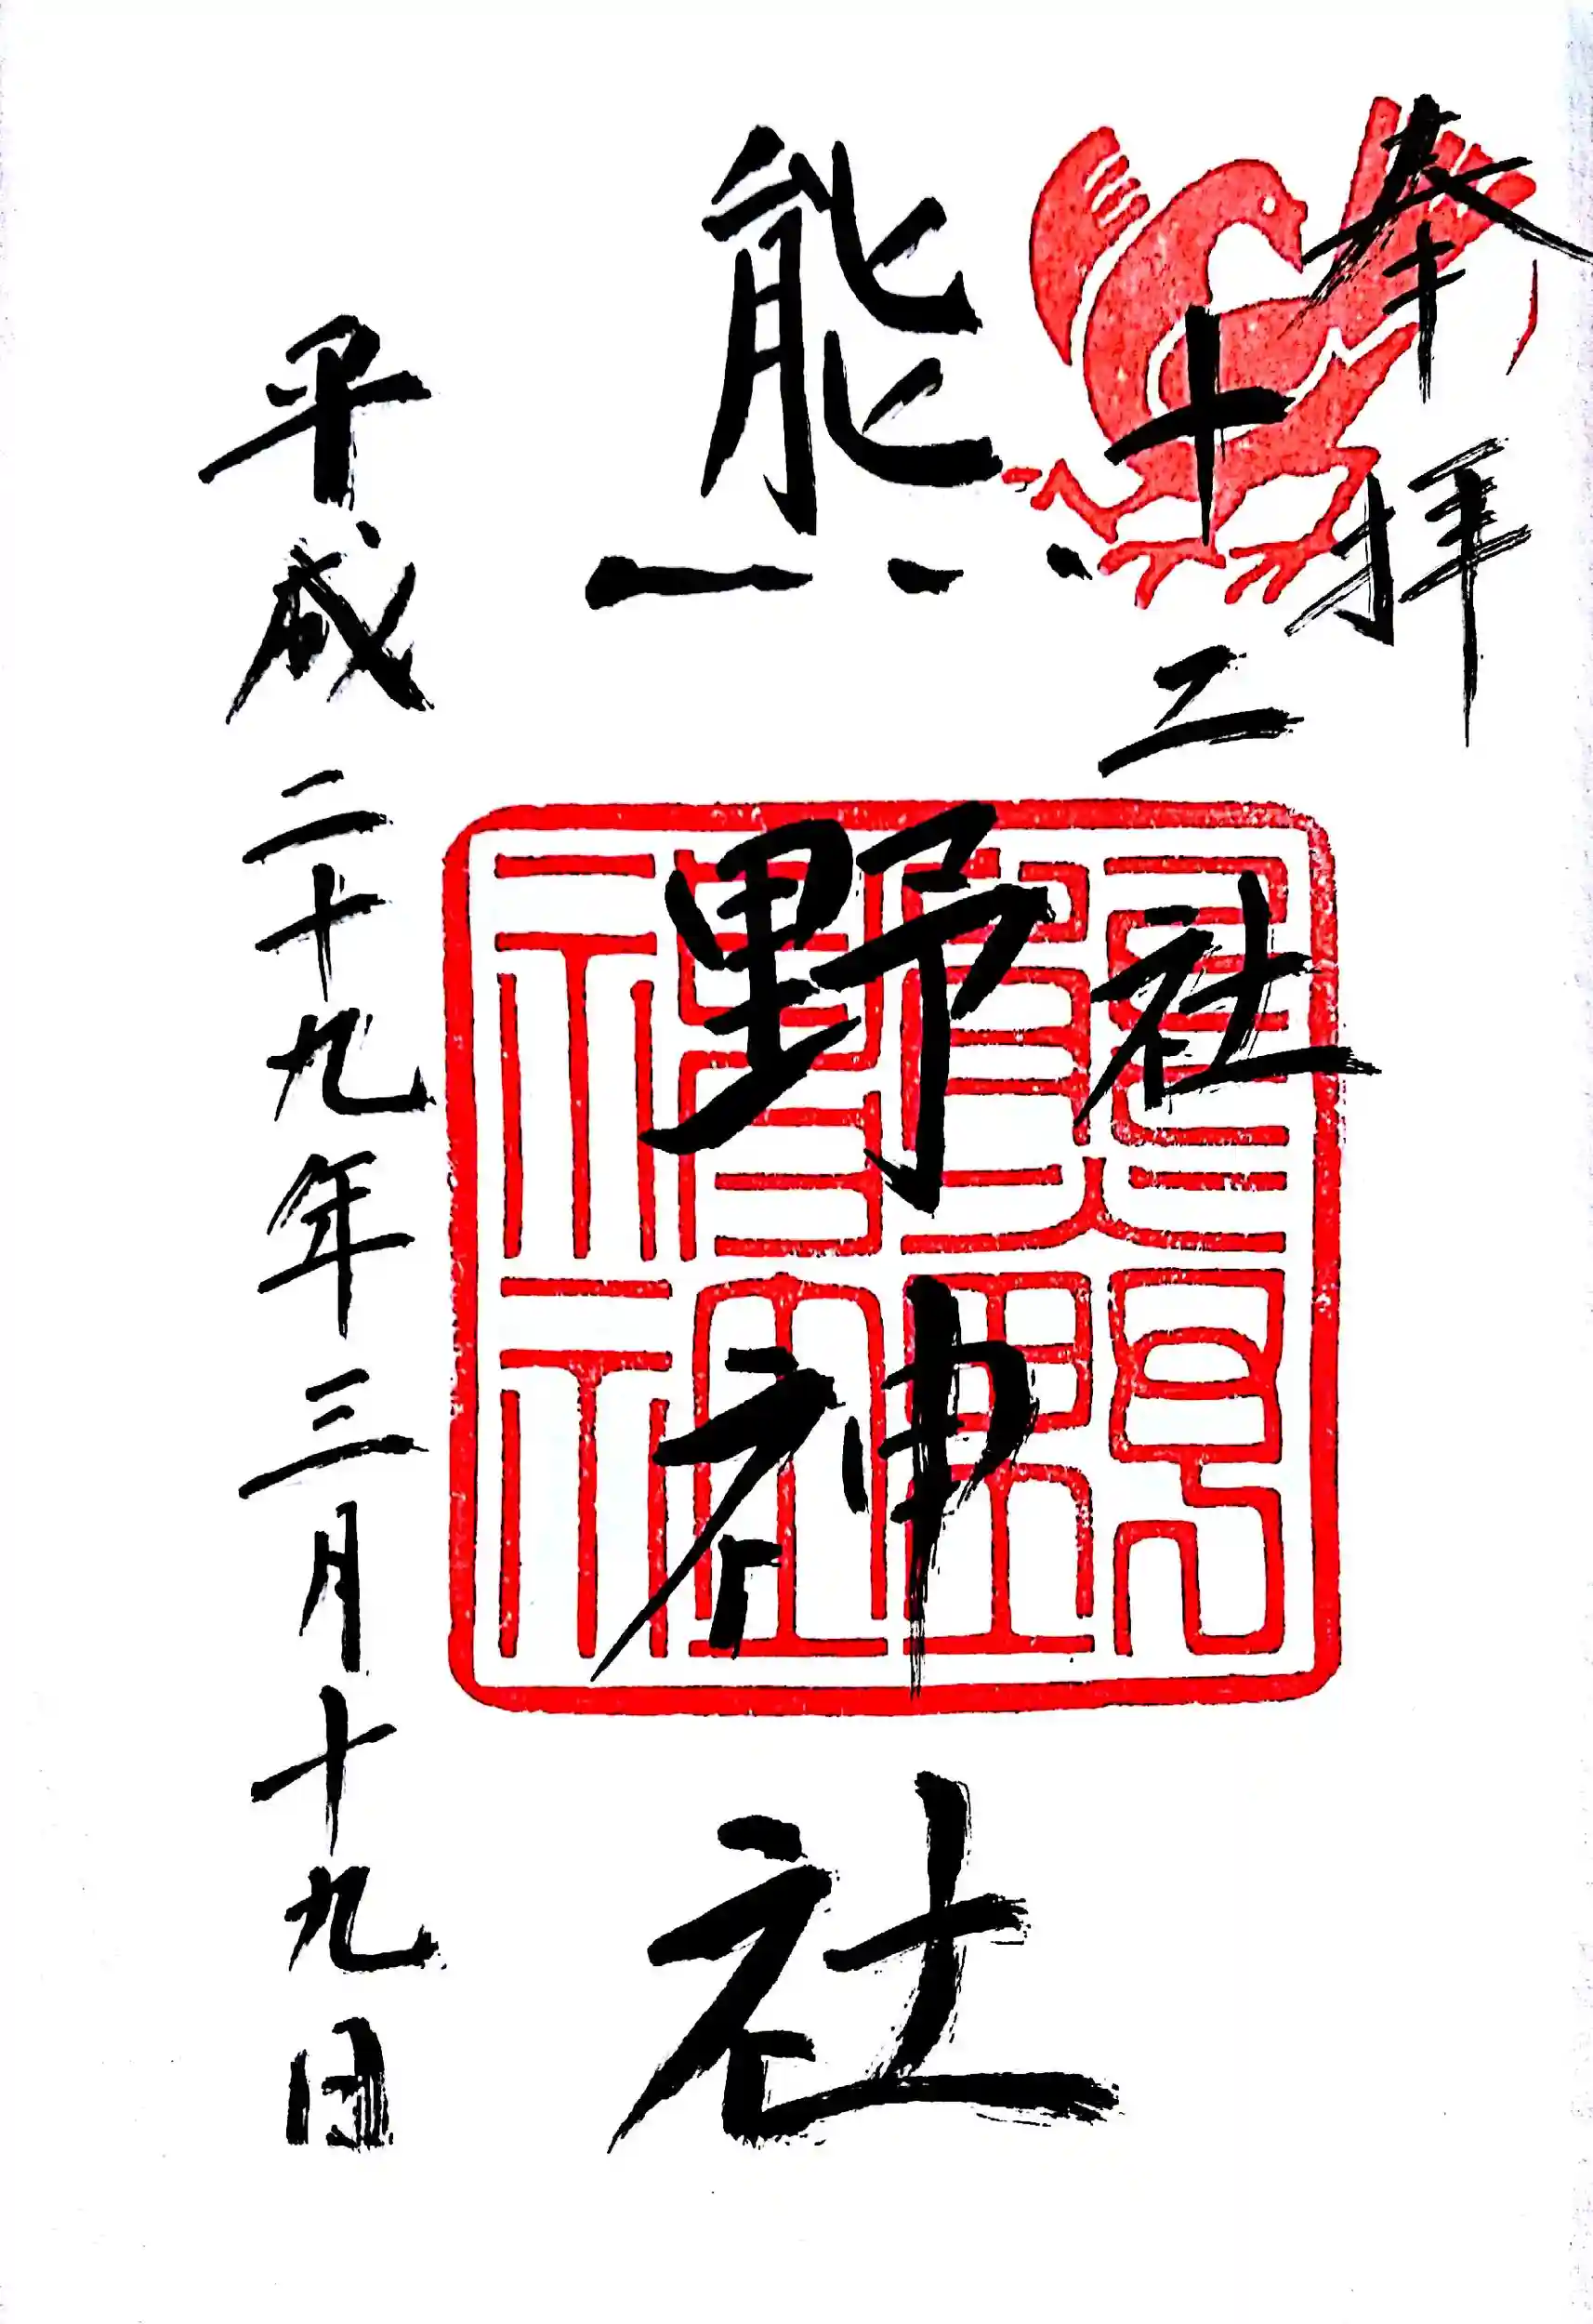 奉拝
十二社
熊野神社
平成二十九年三月十九日